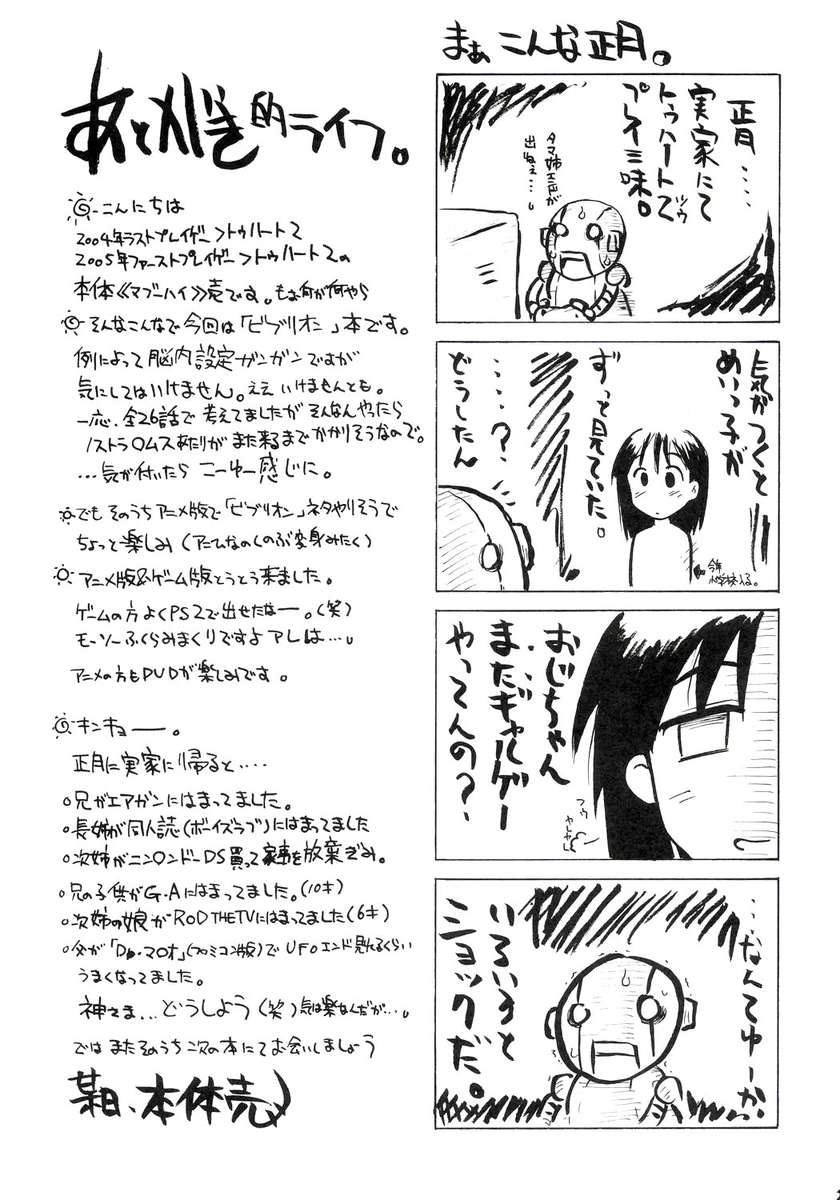 まぁこんな正月。
正月‥‥
実家にて
トゥハート2(ツウ)で
プレイ三昧。
タマ姉エンドが
出ねぇ…。
気がつくと
めいっ子が
ずっと見ていた。
‥‥?
どうしたん
今年
おじちゃん
‥‥
まだギャルゲー
やってんの?
フゥ
やれやれ
…なんてゆーか、
いろいろと
ショックだ。
あとがき的ライフ。
こんにちは
2004年ラストプレイゲー>トゥハート2
2005年ファーストプレイゲー>トゥハート2の
本体《マブーハイ》売です。もぉ何が何やら
そんなこんなで今回は「ビブリオン」本です。
例によって脳内設定ガンガンですが
気にしてはいけません。ええ いけませんとも。
一応、全26話で考えてましたが そんなんやったら
ノストラ〇ムスあたりがまた来るまでかかりそうなので。
…気が付いたら こーゆー感じに。
でも そのうちアニメ版で「ビブリオン」ネタやりそうで
ちょっと楽しみ(アニムなのくのぶ変身みたく)
アニメ版&ゲーム版とうとう来ました。
ゲームの方 よくPS2で出せたなー。(笑)
モーソーふくらみまくりですよ アレは…。
アニメの方もDVDが楽しみです。
キンキョー。
正月に実家に帰ると‥‥
。兄がエアガンにはまってました。
。長姉が同人誌(ボーイズラブ)にはまってました
。次姉がニンロンドーDS買って家事を放棄ぎみ。
。兄の子供がG.Aにはまってました。(10才)
。次姉の娘がROD THE TVにはまってました(6才)
。父が「Dr.マ〇オ」(ファミコン版)でUFOエンド見れるくらい
うまくなってました。
神さま…どうしよう(笑)気は楽なんだが…。
では またそのうち次の本にてお会いしましょう
某日、本体売